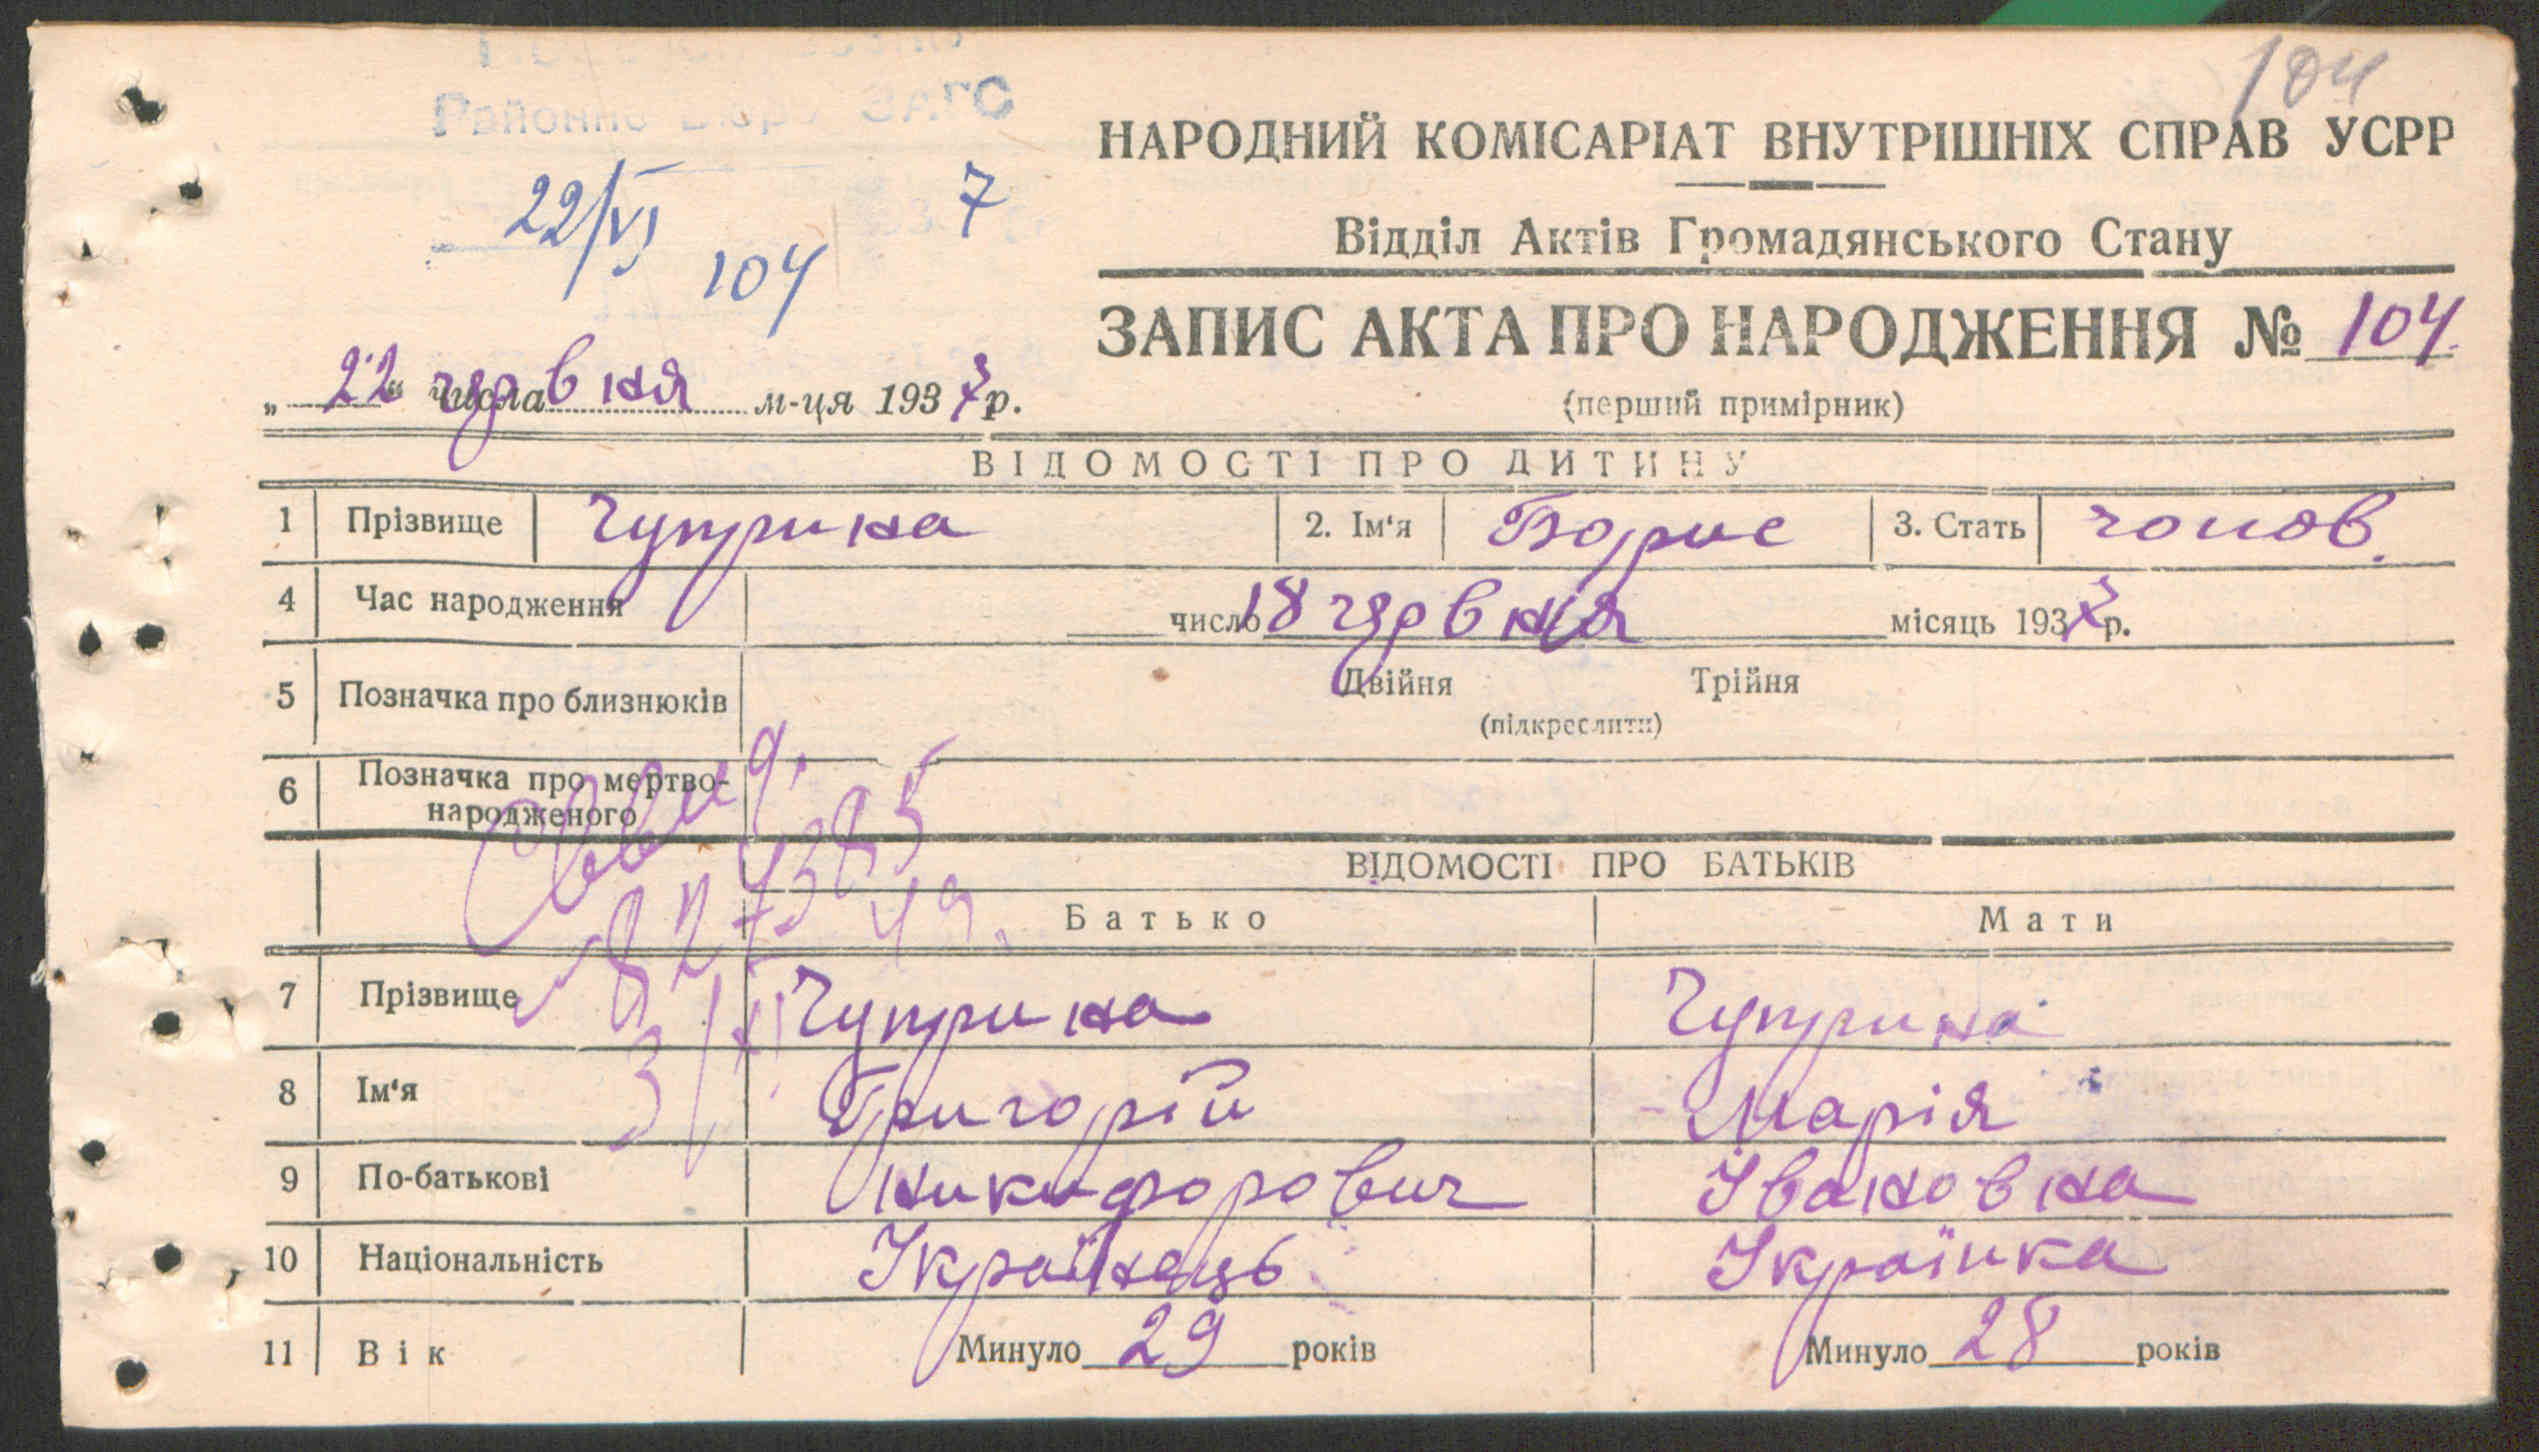 104
Районне Бюро ЗАГС
НАРОДНИЙ КОМІСАРІАТ ВНУТРІШНІХ СПРАВ УСРР
22/VI 7
104
Відділ Актів Громадянського Стану
ЗАПИС АКТА ПРО НАРОДЖЕННЯ № 104.
„22“ числа червня м-ця 1937 р.
(перший примірник)
ВІДОМОСТІ ПРО ДИТИНУ
1 Прізвище Чуприна 2. Ім‘я Борис 3. Стать чолов.
4 Час народження число 18 червня місяць 1937 р.
5 Позначка про близнюків Двійня Трійня
(підкреслити)
6 Позначка про мертво-
народженого
ВІДОМОСТІ ПРО БАТЬКІВ
Батько Мати
7 Прізвище Чуприна Чуприна
8 Ім‘я Григорій Марія
9 По-батькові Никифорович Івановна
10 Національність Українець Українка
11 Вік Минуло 29 років Минуло 28 років